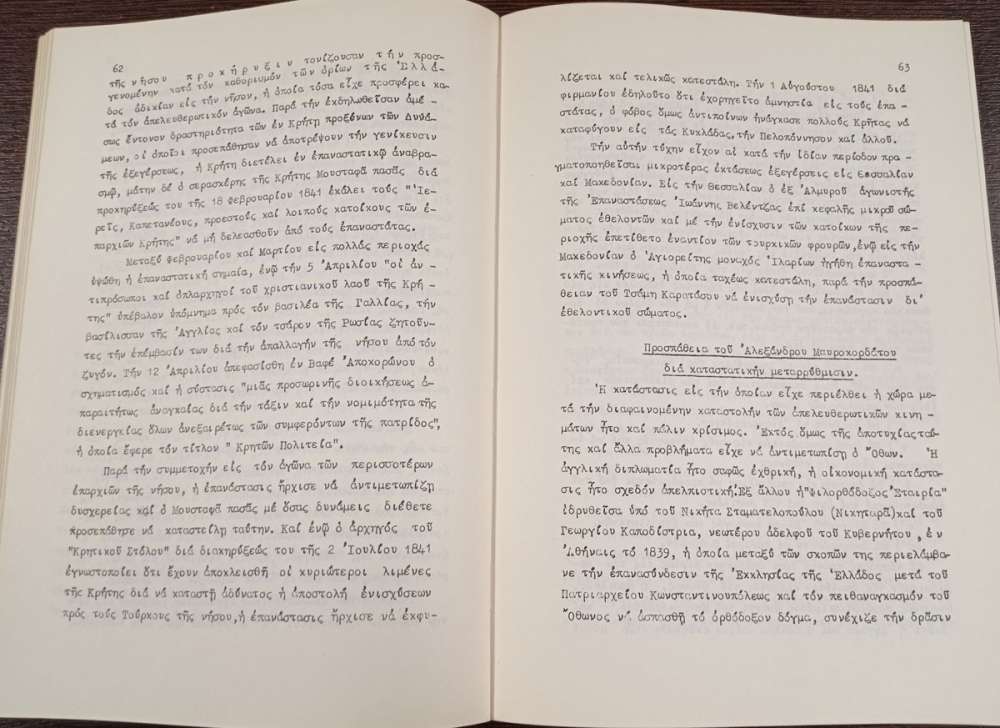 62
τῆς νήσου προκήρυξιν τονίζουσαν τήν προσ-
γενομένην κατά τόν καθορισμόν τῶν ὁρίων τῆς Ἑλλά-
δος ἀδικίαν εἰς τήν νῆσον, ἡ ὁποία τόσα εἶχε προσφέρει κα-
τά τόν ἀπελευθερωτικόν ἀγῶνα. Παρά τήν ἐκδηλωθεῖσαν ἀμέ-
σως ἔντονον δραστηριότητα τῶν ἐν Κρήτῃ προξένων τῶν Δυνά-
μεων, οἱ ὁποῖοι προσεπάθησαν νά ἀποτρέψουν τήν γενίκευσιν
τῆς ἐξεγέρσεως, ἡ Κρήτη διετέλει ἐν ἐπαναστατικῷ ἀναβρα-
σμῷ, μάτην δέ ὁ σερασκέρης τῆς Κρήτης Μουσταφᾶ πασᾶς διά
προκηρύξεώς του τῆς 18 φεβρουαρίου 1841 ἐκάλει τούς "Ἱε-
ρεῖς, Καπετανίους, προεστούς καί λοιπούς κατοίκους τῶν ἐ-
παρχιῶν Κρήτης" νά μή δελεασθοῦν ἀπό τούς ἐπαναστάτας.
Μεταξύ φεβρουαρίου καί Μαρτίου εἰς πολλάς περιοχάς
ὑψώθη ἡ ἐπαναστατική σημαία, ἐνῷ τήν 5 Ἀπριλίου "οἱ ἀν-
τιπρόσωποι καί ὁπλαρχηγοί τοῦ χριστιανικοῦ λαοῦ τῆς Κρή-
της" ὑπέβαλον ὑπόμνημα πρός τόν βασιλέα τῆς Γαλλίας, τήν
βασίλισσαν τῆς Ἀγγλίας καί τόν τσάρον τῆς Ρωσίας ζητοῦν-
τες τήν ἐπέμβασίν των διά τήν ἀπαλλαγήν τῆς νήσου ἀπό τόν
ζυγόν. Τήν 12 Ἀπριλίου ἀπεφασίσθη ἐν Βαφέ Ἀποκορώνου ὁ
σχηματισμός καί ἡ σύστασις "μιᾶς προσωρινῆς διοικήσεως ἀ-
παραιτήτως ἀναγκαίας διά τήν τάξιν καί τήν νομιμότητα τῆς
διενεργείας ὅλων ἀνεξαιρέτως τῶν συμφερόντων τῆς πατρίδος",
ἡ ὁποία ἔφερε τόν τίτλον " Κρητῶν Πολιτεία".
Παρά τήν συμμετοχήν εἰς τόν ἀγῶνα τῶν περισσοτέρων
ἐπαρχιῶν τῆς νήσου, ἡ ἐπανάστασις ἤρχισε νά ἀντιμετωπίζῃ
δυσχερείας καί ὁ Μουσταφᾶ πασᾶς μέ ὅσας δυνάμεις διέθετε
προσεπάθησε νά καταστείλῃ ταύτην. Καί ἐνῷ ὁ ἀρχηγός τοῦ
"Κρητικοῦ Στόλου" διά διακηρύξεώς του τῆς 2 Ἰουλίου 1841
ἐγνωστοποίει ὅτι ἔχουν ἀποκλεισθῆ οἱ κυριώτεροι λιμένες
τῆς Κρήτης διά νά καταστῇ ἀδύνατος ἡ ἀποστολή ἐνισχύσεων
πρός τούς Τούρκους τῆς νήσου, ἡ ἐπανάστασις ἤρχισε νά ἐκφυ-
63
λίζεται καί τελικῶς κατεστάλη. Τήν 1 Αὐγούστου 1841 διά
φιρμανίου ἐδηλοῦτο ὅτι ἐχορηγεῖτο ἀμνηστία εἰς τούς ἐπα-
στάτας, ὁ φόβος ὅμως ἀντιποίνων ἠνάγκασε πολλούς Κρῆτας νά
καταφύγουν εἰς τάς Κυκλάδας, τήν Πελοπόννησον καί ἀλλοῦ.
Τήν αὐτήν τύχην εἶχον αἱ κατά τήν ἰδίαν περίοδον πρα-
γματοποιηθεῖσαι μικροτέρας ἐκτάσεως ἐξεγέρσεις εἰς Θεσσαλίαν
καί Μακεδονίαν. Εἰς τήν Θεσσαλίαν ὁ ἐξ Ἁλμυροῦ ἀγωνιστής
τῆς Ἐπαναστάσεως Ἰωάννης Βελέντζας ἐπί κεφαλῆς μικροῦ σώ-
ματος ἐθελοντῶν καί μέ τήν ἐνίσχυσιν τῶν κατοίκων τῆς πε-
ριοχῆς ἐπετίθετο ἐναντίον τῶν τουρκικῶν φρουρῶν, ἐνῷ εἰς τήν
Μακεδονίαν ὁ Ἁγιορείτης μοναχός Ἱλαρίων ἡγήθη ἐπαναστα-
τικῆς κινήσεως, ἡ ὁποία ταχέως κατεστάλη, παρά τήν προσπά-
θειαν τοῦ Τσάμη Καρατάσου νά ἐνισχύσῃ τήν ἐπανάστασιν δι'
ἐθελοντικοῦ σώματος.
Προσπάθεια τοῦ Ἀλεξάνδρου Μαυροκορδάτου
διά καταστατικήν μεταρρύθμισιν.
Ἡ κατάστασις εἰς τήν ὁποίαν εἶχε περιέλθει ἡ χώρα με-
τά τήν διαφαινομένην καταστολήν τῶν ἀπελευθερωτικῶν κινη-
μάτων ἦτο καί πάλιν κρίσιμος. Ἐκτός ὅμως τῆς ἀποτυχίας ταύ-
της καί ἄλλα προβλήματα εἶχε νά ἀντιμετωπίσῃ ὁ Ὄθων. Ἡ
ἀγγλική διπλωματία ἦτο σαφῶς ἐχθρική, ἡ οἰκονομική κατάστα-
σις ἦτο σχεδόν ἀπελπιστική. Ἐξ ἄλλου ἡ "φιλορθόδοξος Ἑταιρία"
ἱδρυθεῖσα ὑπό τοῦ Νικήτα Σταματελοπούλου (Νικηταρᾶ) καί τοῦ
Γεωργίου Καποδίστρια, νεωτέρου ἀδελφοῦ τοῦ Κυβερνήτου, ἐν
Ἀθήναις τό 1839, ἡ ὁποία μεταξύ τῶν σκοπῶν της περιελάμβα-
νε τήν ἐπανασύνδεσιν τῆς Ἐκκλησίας τῆς Ἑλλάδος μετά τοῦ
Πατριαρχείου Κωνσταντινουπόλεως καί τόν πειθαναγκασμόν τοῦ
Ὄθωνος νά ἀσπασθῇ τό ὀρθόδοξον δόγμα, συνέχιζε τήν δρᾶσιν